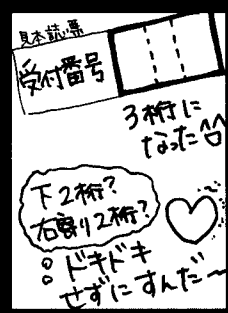 見本誌票
受付番号
3桁に
なった^^
下2桁?
右寄り2桁?
ドキドキ
せずにすんだ〜